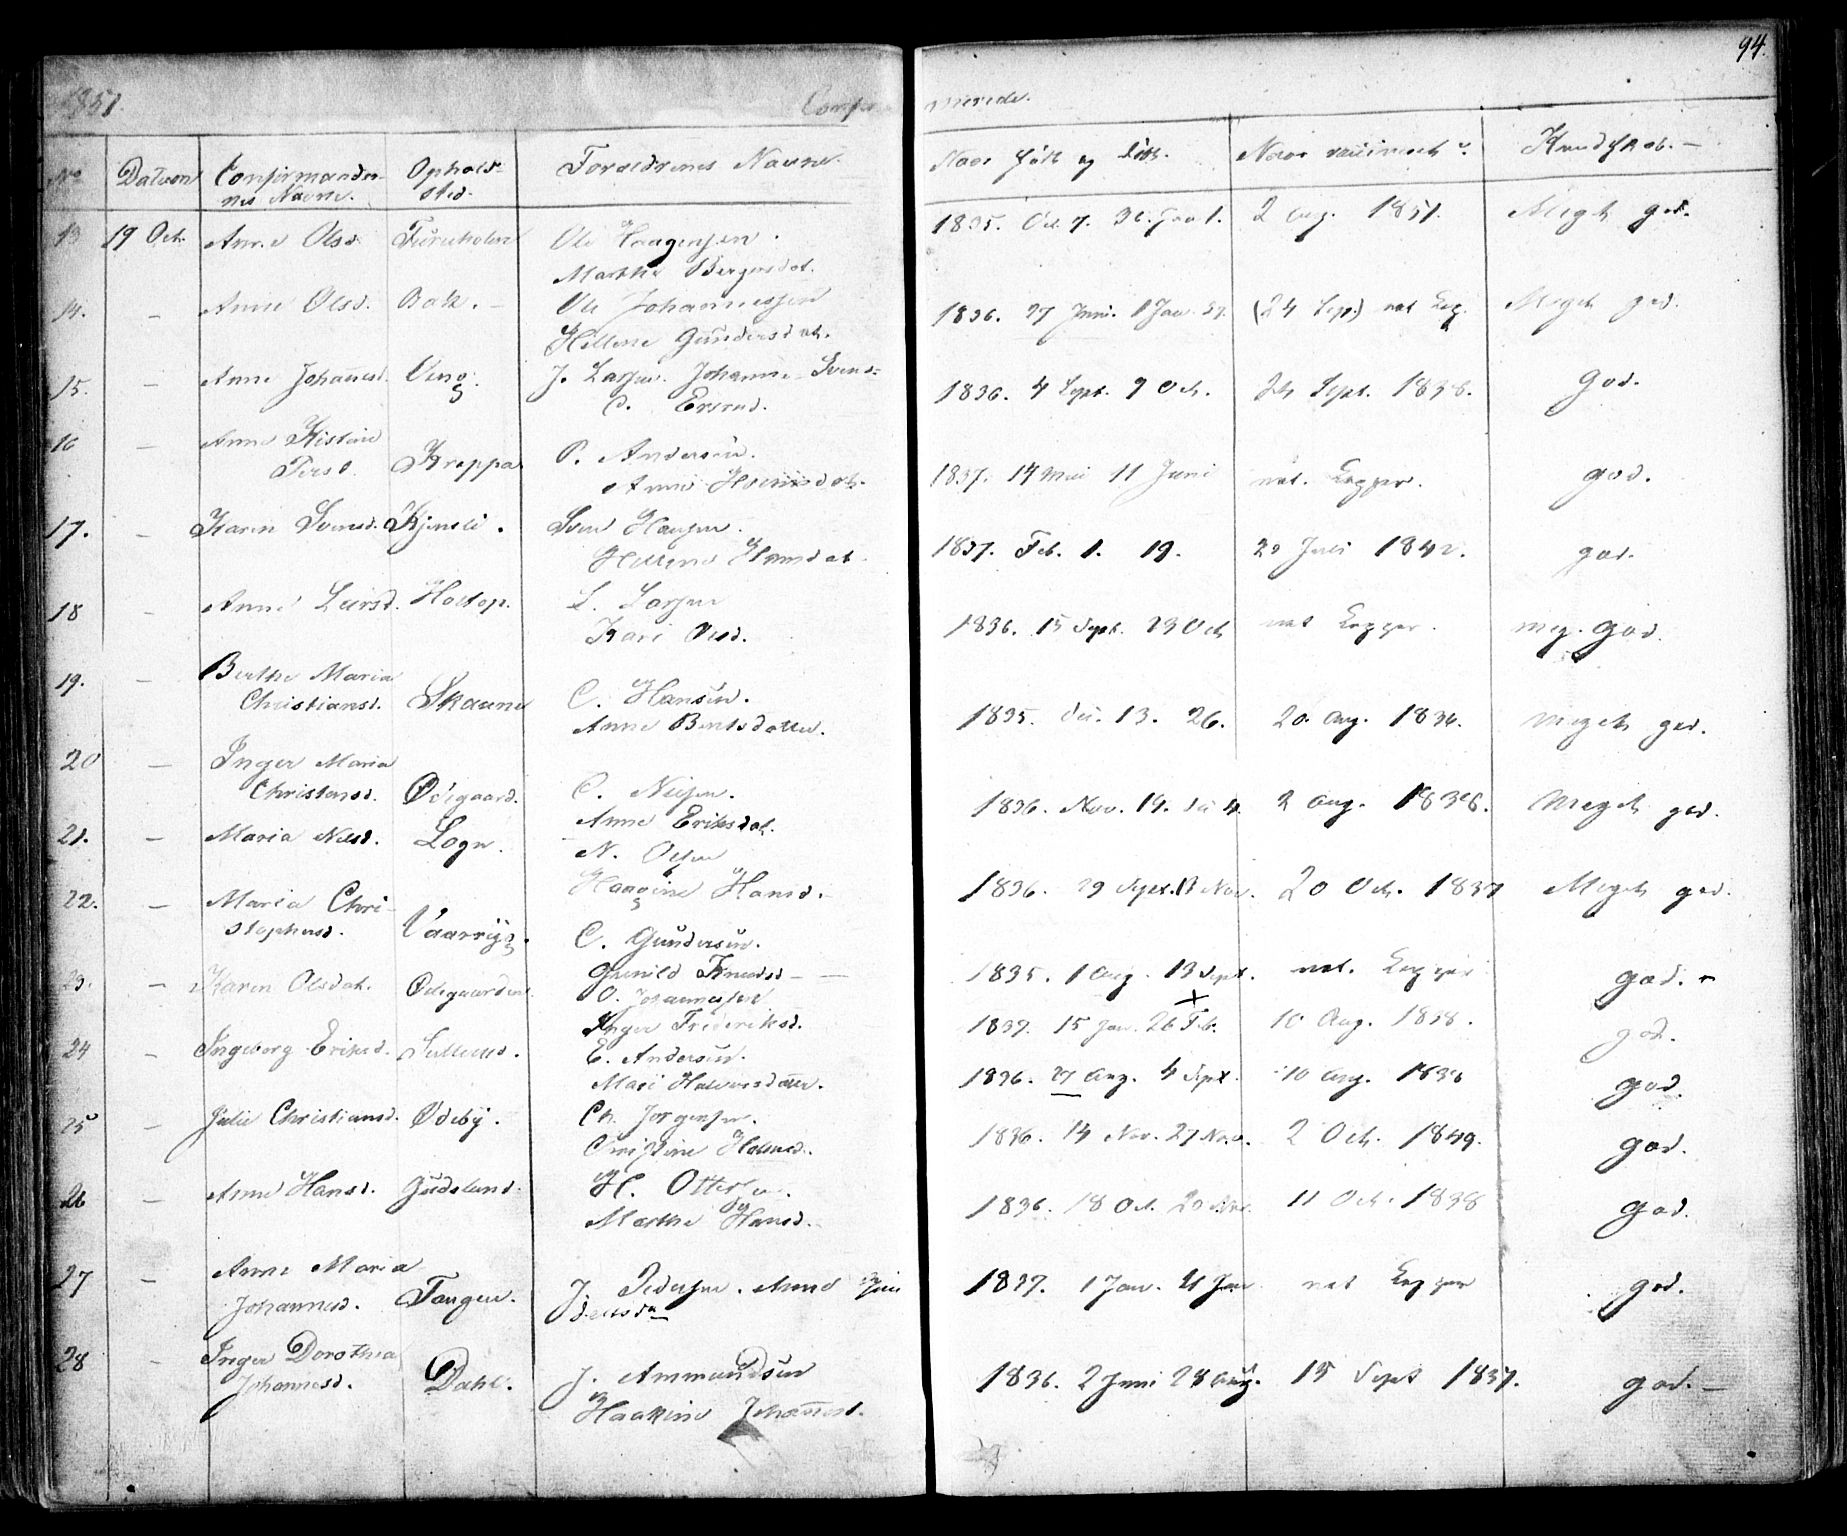 94.
1851. Confir merede.
No Datum Confirmander- Ophold- Foraeldrenes Navne. Naar født og døbt. Naar vaccineret Kundskab. —
nes Navne. sted.
13 19 Oct. Anne Olsd. Furuholen Ole Haagensen. 1835. Oct 7. 2 Aug. 1851. Meget god.
Marthe Bergersdat.
14. — Anne Olsd. Bak. — Ole Johannessen 1836. 27 Juni. 1 Jan. 37. (24 Sep.) nat. Kop. Meget god.
Hellene Gundersdat.
15. — Anne Johannesd. Ueng. J. Larsen. Johanne Svends- 1836. 4 Sept. 9 Oct. Sept. 1838. God.
16 — Anne Kistine P. Andersen. 1837. 14 Mai 11 Juni nat. Kopper. god.
Persd. Kreppa Anne
17. — Karen Svensd. Kjensli. Sven Hansen. 1837. Feb. 1. 19. 20 Juli 1842. god.
Hellene Hansdat.
18 — Anne Larsd. Holtop. L. Larsen 1836. 15 Sept. 23 Oct nat Kopper. meg. god.
Kari Olsd.
19. — Berthe Maria
Christiansd. Skaune C. Hansen. 1835. Dec. 13. 26. 20. Aug. 1836. Meget god.
Anne Berntsdatter.
20 — Inger Maria
Christiansd. Ødegaard. C. Nilsen. 1836. Nov. 19. De 4. 2 Aug. 1838. Meget god.
Anne Eriksdat.
21. — Maria Nilsd. Logn. N. Olsen 1836. 29 Sept. 13 Nov. 20 Oct. 1837 Meget god.
Haagine Hansd.
22. — Maria Chri-
stophersd. Vaarryg. C. Gundersen. 1835. 1 Aug. 13 Sept. nat. Kopper god. -
Gunild Knudsd —
23. — Karen Olsdat. Ødegaarden O. Johannesen 1837. 15 Jan. 26 Feb. 10 Aug. 1838. god.
Inger Frideriksd.
24 — Ingeborg Eriksd. E. Andersen. 1836. 27 Aug. 4 Sept. 10 Aug. 1838 god.
Mari Halvorsdatter.
25 — Julie Christiansd. Ødeby. Ch. Jørgensen. 1836. 14 Nov. 27 Nov. 2 Oct. 1849. god.
Christine
26 — Anne Hansd. Gudslund. H. Ottersen. 1836. 18 Oct. 20 Nov. 11 Oct. 1838 god.
Marthe Hansd.
27 — Anne Maria
Johannesd. Tangen. J. Pedersen. Anne 1837. 1 Jan. Jan nat Kopper god.
28 — Inger Dorothea
Johannesd. Dahl. J. Ammundsen 1836. 2 Juni 28 Aug. 15 Sept 1837. god. —
Haakine Johannesd.